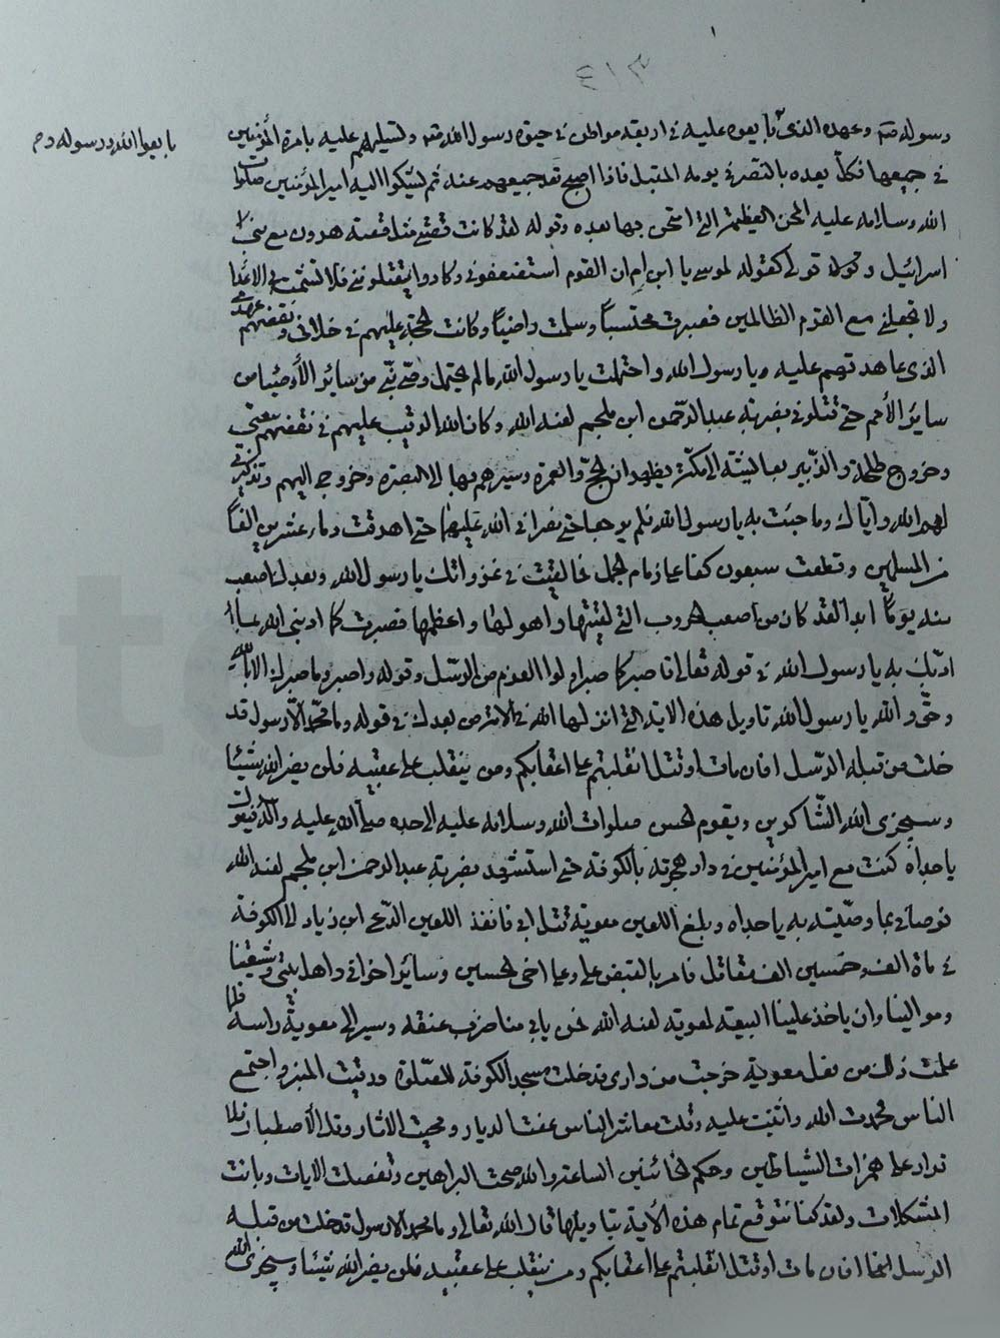 ٣١٤
بايعوا الله ورسوله وم
ورسوله صم وعهده الذى بايعوه عليه فى اربعة مواطن فى حيوة رسول الله صم وتسليمهم عليه بامرة المؤمنين
فى جميعها فكل يعده بالنصر فى يومه المقبل فاذا اصبح قعد جميعهم عنه ثم يشكوا اليه امير المؤمنين صلوات
الله وسلامه عليه المحن العظيمة التى امتحن بها بعده وقوله لقد كانت قصتى مثل قصة هرون مع بنى
اسرائيل وقولى كقوله لموسى يا ابن ام ان القوم استضعفونى وكادوا يقتلوننى فلا تشمت بى الاعدا
ولا تجعلنى مع القوم الظالمين فصبرت محتسباً وسلمت راضياً وكانت الحجة عليهم فى خلافى ونقضهم عهدى
الذى عاهدتهم عليه يا رسول الله واحتملت يا رسول الله ما لم يحتمل وصى نبى من سائر الأوصياء من
سائر الأمم حتى قتلونى بضربة عبد الرحمن ابن ملجم لعنه الله وكان الله الرقيب عليهم فى نقضهم بيعتى
وخروج طلحة والزبير بعايشة الى مكة يظهران الحج والعمرة وسيرهم بها الى البصرة وخروجى اليهم وتذكيرى
لهم الله واياك وما جئت به يا رسول الله فلم يرجعا حتى نصرنى الله عليهما حتى اهرقت دماء عشرين الفاً
من المسلمين وقطعت سبعون كفا على زمام الجمل فما لقيت فى غزواتك يا رسول الله وبعدك اصعب
منه يوماً ابدا لقد كان من اصعب الحروب التى لقيتها واهولها واعظمها فصبرت كما ادبنى الله بما
ادبك به يا رسول الله فى قوله تعالى فاصبر كما صبر اولوا العزم من الرسل وقوله واصبر وما صبرك الا بالله
وحق والله يا رسول الله تاويل هذه الاية التى انزلها الله فى الامة من بعدك فى قوله وما محمد الا رسول قد
خلت من قبله الرسل افان مات او قتل انقلبتم على اعقابكم ومن ينقلب على عقبيه فلن يضر الله شيئا
وسيجزى الله الشاكرين ويقوم الحسن صلوات الله وسلامه عليه الى جده صلى الله عليه وآله فيقول
يا جداه كنت مع امير المؤمنين فى دار هجرته بالكوفة حتى استشهد بضربة عبد الرحمن ابن ملجم لعنه الله
فوصانى بما وصيته به يا جداه وبلغ اللعين معوية قتل ابى فانفذ اللعين الدعى ابن زياد الى الكوفة
فى ماة الف وخمسين الف مقاتل فامر بالقبض على وعلى اخى الحسين وسائر اخوانى واهل بيتى وشيعتنا
وموالينا وان ياخذ علينا البيعة لمعوية لعنه الله فمن يابى منا ضرب عنقه وسير الى معوية راسه فلما
علمت ذلك من فعل معوية خرجت من دارى فدخلت مسجد الكوفة للصلوة ورقيت المنبر واجتمع
الناس فحمدت الله واثنيت عليه وقلت معاشر الناس عفت الديار ومحيت الاثار وقل الأصطبار فلا
قرار على همزات الشياطين وحكم الخائنين الساعة والله صحت البراهين وتفصلت الايات وبانت
المشكلات ولقد كنا نتوقع تمام هذه الأية بتاويلها قال الله تعالى وما محمد الا رسول قد خلت من قبله
الرسل افان مات او قتل انقلبتم على اعقابكم ومن ينقلب على عقبيه فلن يضر الله شيئا وسيجزى الله